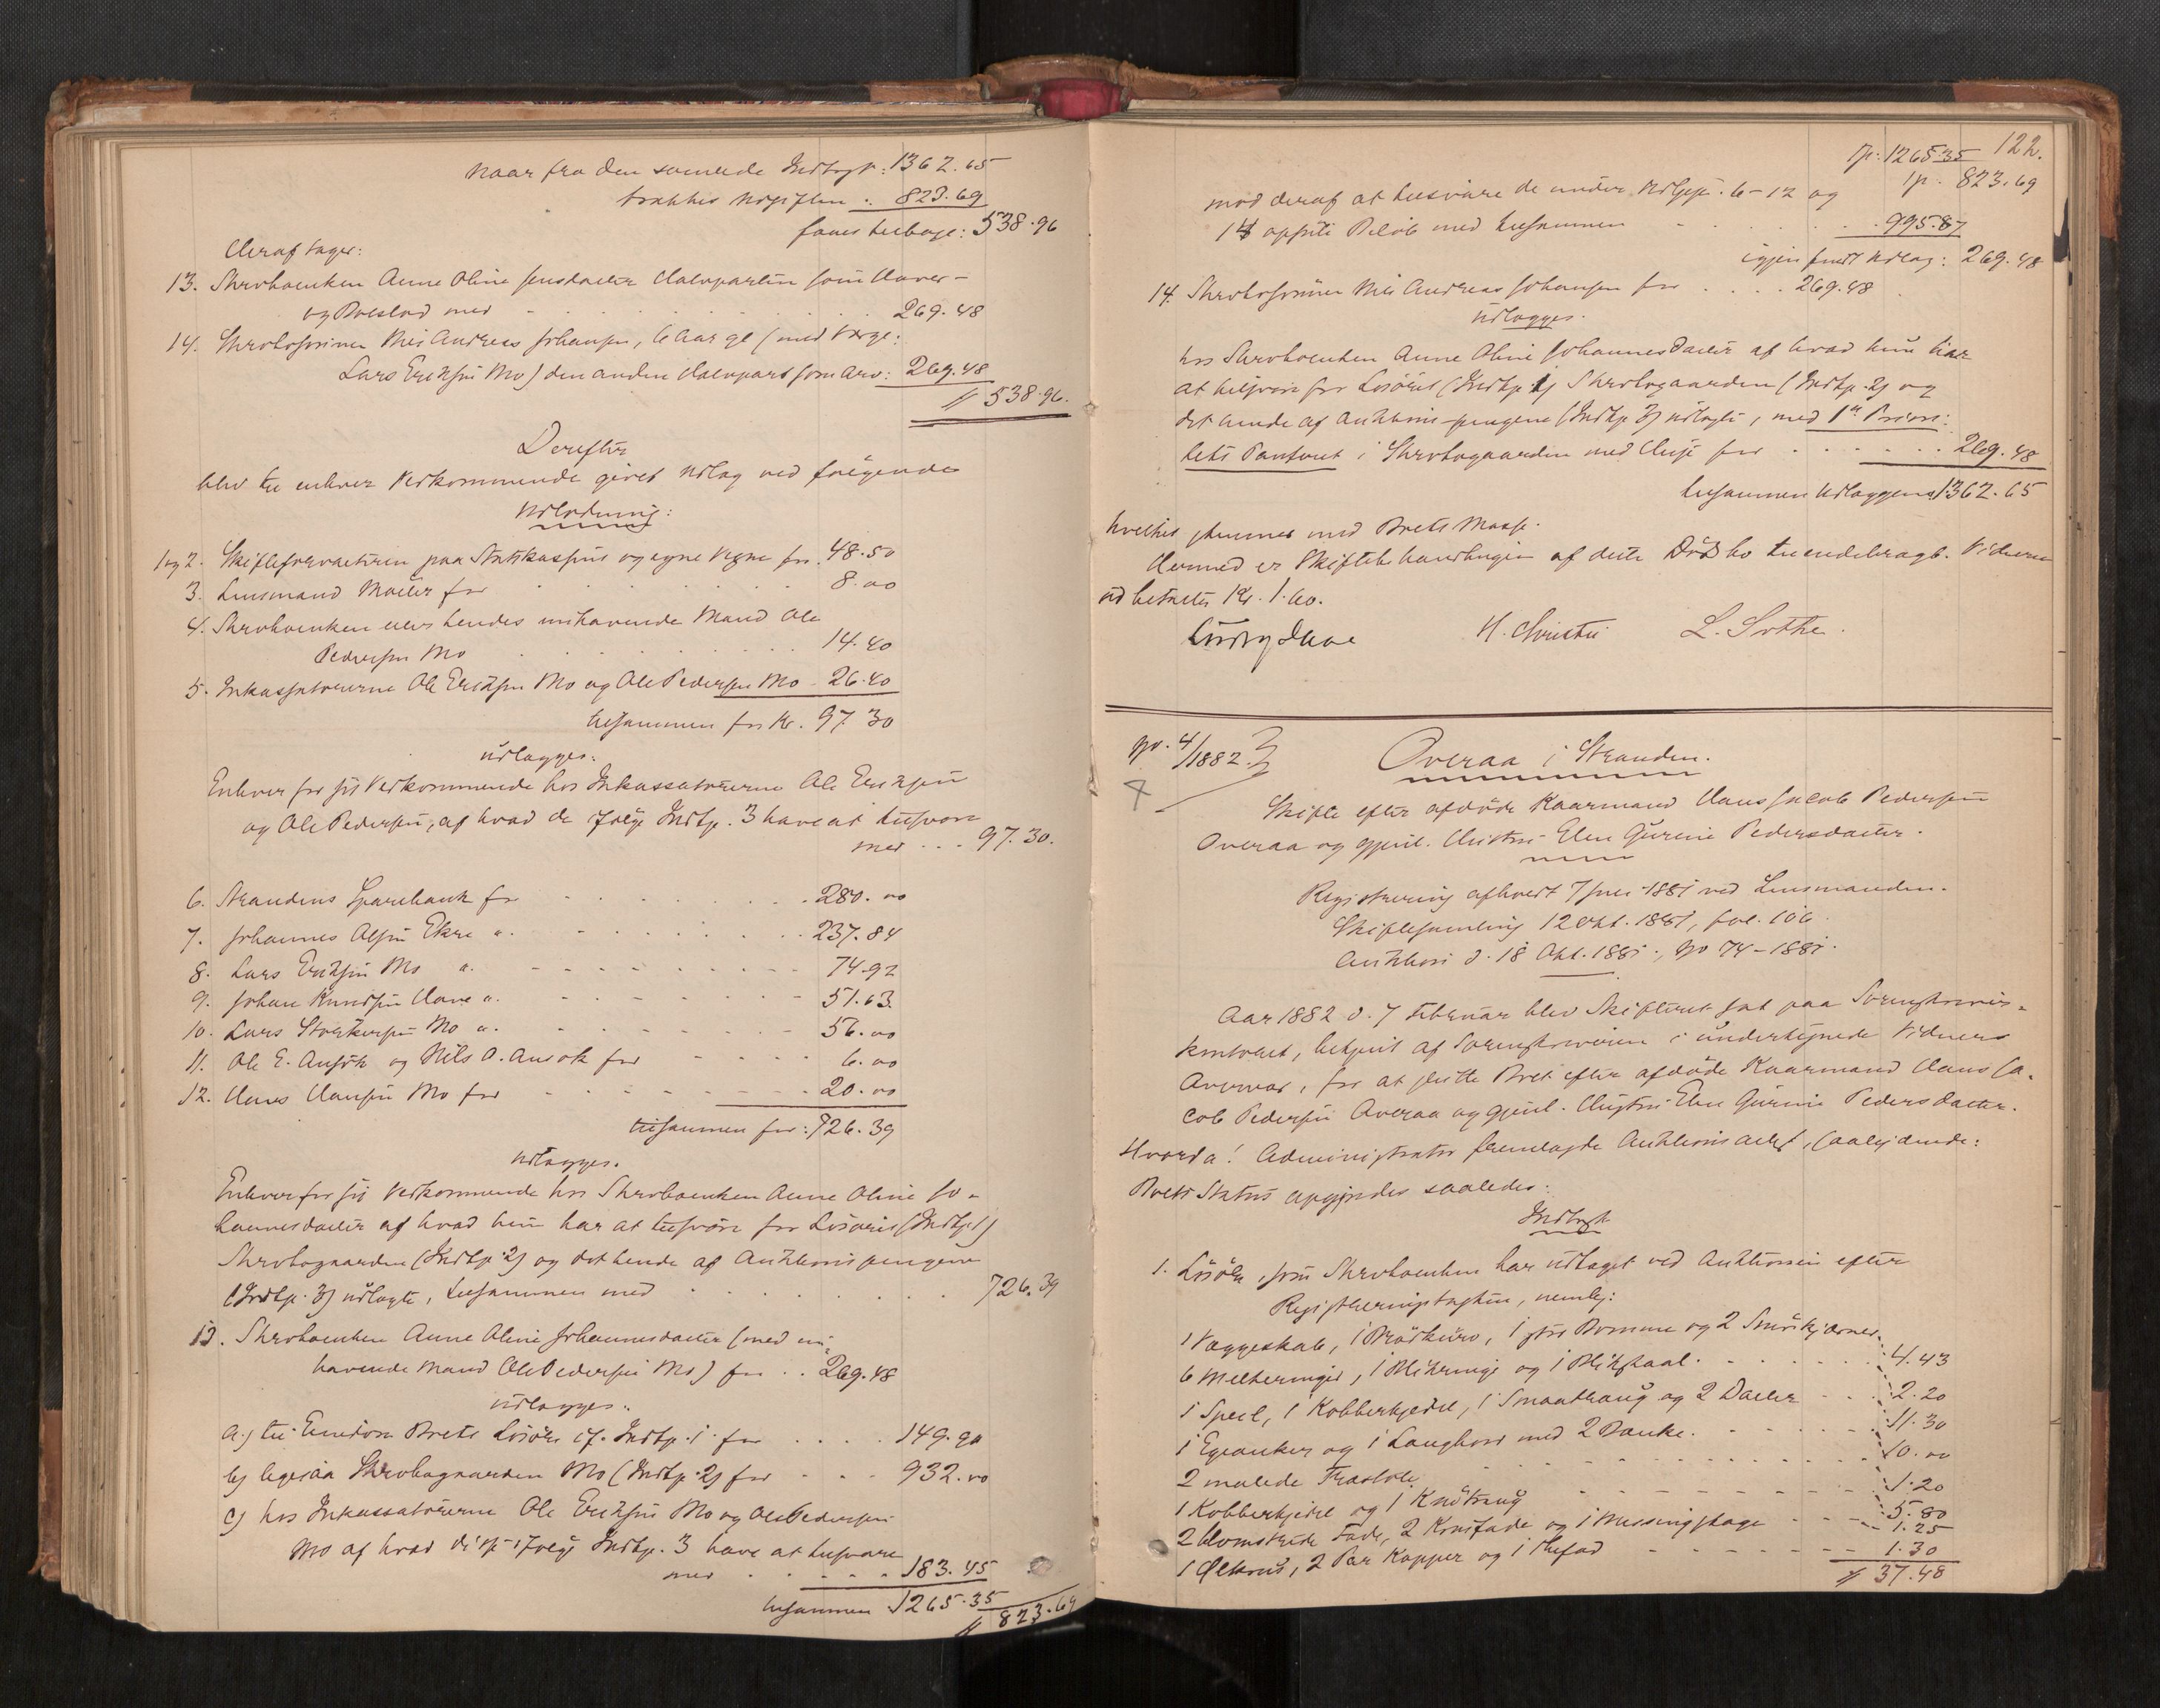 naar fra den samlede Indtægt: 1362.65
trækkes Udgiften : 823.69
faaes tilbage: 538.96
Heraf tager:
13. Skrvboenken Anne Oline Jensdatter Halvparten som Hoved-
og Boeslod med 269.48
14. Skrvbosønnen Nils Andreas Johansen, 6 Aar gl (med Værge:
Lars Eriksen Mo) den anden Halvpart som Arv: 269.48
538.96.
Derefter
blev til enhver Vedkommende givet Udlæg ved følgende
Udlodning:
1 og 2. Skifteforvalteren paa Statskassens og egne Vegne for 48.50
3. Lensmand Møller for 8.00
4. Skrvboenken eller hendes nuhavende Mand Ole
Pedersen Mo 14.40
5. Inkassatorerne Ole Eriksen Mo og Ole Pedersen Mo 26.40
tilsammen for Kr. 97.30
udlægges:
Enhver for sit Vedkommende hos Inkassatorerne Ole Eriksen
og Ole Pedersen, af hvad de ifølge Indtp. 3 have at tilsvare
med 97.30.
6. Strandens Sparebank for 280.00
7. Johannes Olsen Ekre " 237.84
8. Lars Eriksen Mo " 74.92
9. Johan Knudsen Hove " 51.63
10. Lars Storkersen Mo " 56.00
11. Ole E. Ansok og Nils O. Ansok for 6.00
12. Hans Hansen Mo for 20.00
tilsammen for: 726.39
udlægges.
Enhver for sit Vedkommende hos Skrvboenken Anne Oline Jo-
hannesdatter af hvad hun har at tilsvare for Løsøret (Indtp 1)
Skrvbogaarden (Indtp. 2) og det hende af Auktionspengene
(Indtp. 3) udlagte, tilsammen med 726.39
13. Skrvboenken Anne Oline Johannesdatter (med nu
havende Mand Ole Pedersen Mo) for 269.48
udlægges:
a) til Eiendom Boets Løsøre cf. Indtp. 1 for 149.90
b) ligesaa Skrvbogaarden Mo (Indtp. 2) for 932.00
c) hos Inkassatorerne Ole Eriksen Mo og Ole Pedersen
Mo af hvad disse ifølge Indtp. 3 have at tilsvare
med 183.45
tilsammen 1265.35
823.69
122.
Tp: 1265.35 Tp. 823.69
mod deraf at tilsvare de under Udgp. 6-12 og
14 opførte Beløb med tilsammen 995.87
igjen sendt Udlæg: 269.48
14. Skrvbosønnen Nils Andreas Johansen for 269.48
udlægges.
hos Skrvboenken Anne Oline Johannesdatter af hvad hun har
at tilsvare for Løsøret (Indtp 1) Skrvbogaarden (Indtp. 2) og
det hende af Auktionspengene (Indtp 3) udlagte, med 1ste Priori-
tets Panteret i Skrvbogaarden med Huse for 269.48
tilsammen Udlæggene 1362.65
hvilket stemmer med Boets Masse.
Hermed er Skiftebehandlingen af dette Dødsbo tilendebragt. Vidnerne
ud betaltes Kr. 1.60.
H. Christie L. Sothe.
No. 4/1882.
Overaa i Stranden.
Skifte efter afdøde Kaarmand Hans Jacob Pedersen
Overaa og gjenl. Hustru Elen Gurine Pedersdatter.
Registrering afholdt 7 Juni 1881 ved Lensmanden.
Skiftesamling 12 Okt. 1881, fol. 106.
Auktion d. 18 Okt. 1881, No 74-1881.
Aar 1882 d. 7 Februar blev Skifteret sat paa Sorenskriver-
kontoret, betjent af Sorenskriveren i undertegnede Vidners
Overvær, for at slutte Boet efter afdøde Kaarmand Hans Ja-
cob Pedersen Overaa og gjenl. Hustru Elen Gurine Pedersdatter.
Hvorda! Administrator fremlagde Auktionsaktst, saalydende:
Boets Status opgjordes saaledes:
Indtægt
1. Løsøre, som Skrvboenken har udtaget ved Auktionen efter
Registreringstaxten, nemlig:
1 Væggeskab, 1 Brødkurv, 1 stor Bomme og 2 Smørkjærner 4.43
6 Melkeringer, 1 Blikringe og 1 Blikskaal 2.20
1 Speil, 1 Kobberkjedel, 1 Smaatraug og 2 Daller 11.30
1 Egeanker og 1 Langbord med 2 Bænke. 10.00
2 malede Træstole 1.20
1 Kobberkjedel og 1 Knøtraug 5.80
2 blomstrede Fade, 2 Krusfade og 1 Messingstage 1.25
1 Ølkrus, 2 Par Kopper og 1 Thefad 1.30
37.48